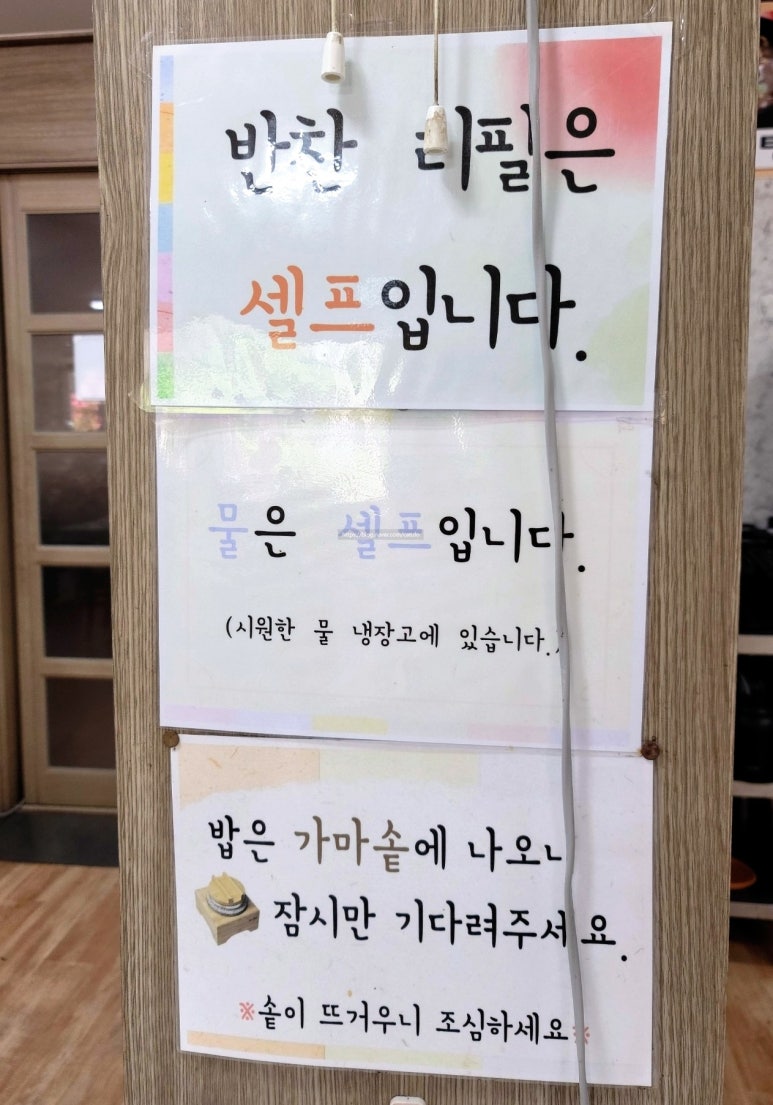 반찬 리필은
셀프입니다.
물은 셀프입니다.
(시원한 물 냉장고에 있습니다.)
밥은 가마솥에 나오니
잠시만 기다려주세요.
※솥이 뜨거우니 조심하세요※